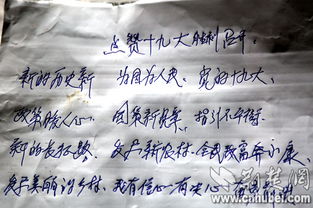 点赞十九大胜利召开
新的历史新 为国为人民 党的十九大
政策暖人心 团策新 指引
新的长征路 发展新农村 全民致富奔小康
发展美丽的乡村 我有信心有决心
荆楚网
www.cnhubei.com